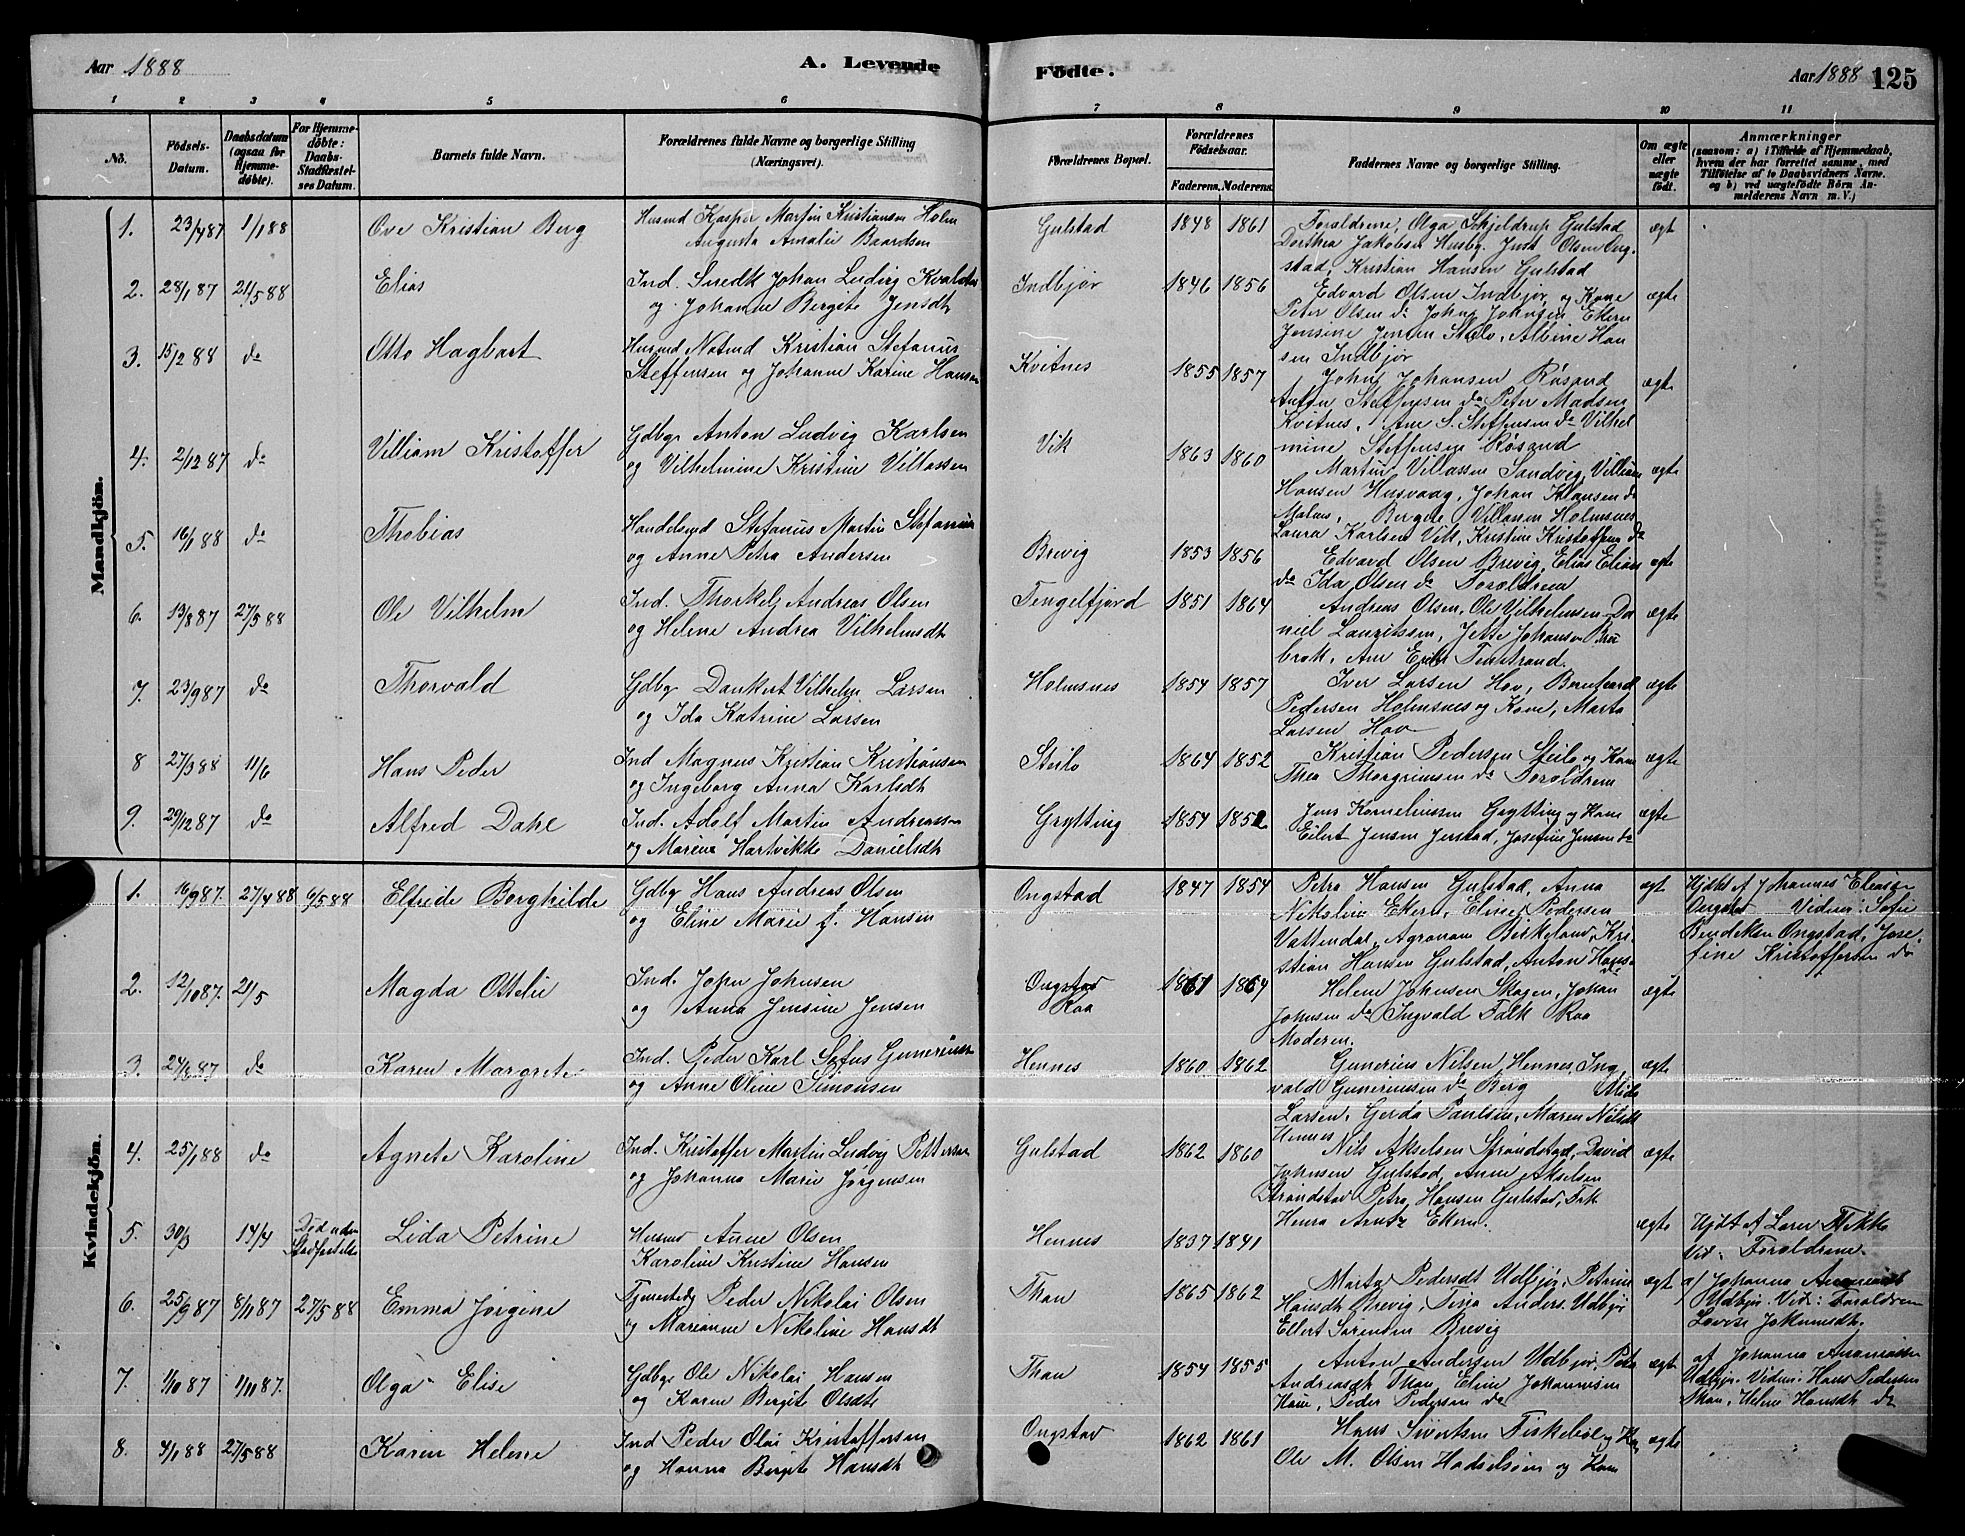 Aar 1888
A. Levende
Födte.
Aar 1888 125
1 2 3 4 5 6 7 8 9 10 11
No.
Födsels-Datum.
Daabsdatum (ogsaa for Hjemme-döbte).
For Hjemme-döbte: Daabs-Stadfæstel-ses Datum.
Barnets fulde Navn.
Forældrenes fulde Navne og borgerlige Stilling (Næringsvei).
Forældrenes Bopæl.
Forældrenes Födselsaar.
Faderens. Moderens.
Faddernes Navne og borgerlige Stilling.
Om ægte eller uægte födt.
Anmærkninger
(saasom: a) i Tilfælde af Hjemmedaab,
hvem der har forrettet samme, med
Tilföielse af to Daabsvidners Navne.
og b) ved uægtefödte Börn An-
melderens Navn m. V.)
Mandkjön.
1. 23/4 87 1/1 88 Ove Kristian Berg
Husmd Kasper Martin Kristiansen Holm
Augusta Amalie Baardsen
Gulstad 1848 1861
Forældrene, Olga Skjeldrup Gulstad
Dorthea Jakobsen Husby. Just Olsen Ong-
stad, Kristian Hansen Gulstad
ægt
2. 28/1 87 21/5 88 Elias
Ind. Snedk Johan Ludvig
og Johanne Bergite Jensdt
Indbjör 1846 1856
Edvard Olsen Indbjör, og Kone
Peter Olsen do John Johnsen Ekern
Jensine Jensen Steilo, Albine Han
sen Indbjör
ægte
3. 15/2 88 do Otto Hagbart
Husmd Kristian Stefanus
Steffensen og Johanne Karine Hansen
Kvitnes 1855 1857
John Johansen Rösand
Anton Steffensen do Peter Madsen
Kvitnes, Ane S. Steffensen do Vilhel
mine Steffensen Rösand
ægte
4. 2/12 87 do Villiam Kristoffer
Gdbgr Anton Ludvig Karlsen
og Vilhelmine Kristine Villassen
Vik 1863 1860
Martin Villassen Sandvig, Villiam
Hansen Husvaag, Johan Hansen do
Malnes, Bergete Villassen Holmsnes
Laura Karlsen Vik, Kristine Kristoffersen do
ægte
5. 16/1 88 do Thobias
Handelsmd Stefanus Martin
og Anne Petra Andersen
Brevig 1853 1856
Edvard Olsen Brevig, Elias
do Ida Olsen do Forældrene
ægte
6. 13/8 87 27/5 88 Ole Vilhelm
Ind. Thorkel Andreas Olsen
og Helene Andrea Vilhelmsdt
Tengelfjord 1851 1864
Andreas Olsen, Ole Vilhelmsen, Da
niel Lauritssen, Jette Johansen
brok, Ane
ægte
7. 23/9 87 do Thorvald
Gdbgr Dankert Vilhelm Larsen
og Ida Katrine Larsen
Holmsnes 1854 1857
Iver Larsen Hov,
Pedersen Holmsnes og Kone, Marta
Larsen Hov
ægte
8 27/3 88 11/6 Hans Peder
Ind Magnus Kristian Kristiansen
og Ingeborg Anna Karlsdt
Steilo 1864 1852
Kristian Pedersen Steilo og Kone
Thea Thorgrimsen do Forældrene
ægte
9. 29/12 87 do Alfred Dahl
Ind. Adolf Martin Andreassen
og Marena Hartvikke Danielsdt
Grytting 1854 1852
Jens Korneliussen Grytting og Kone
Eilert Jensen Jenstad, Josefine Jensen do
ægte
Kvindekjön.
1. 16/9 87. 27/4 88 6/5 88 Elfride Borghilde
Gdbgr Hans Andreas Olsen
og Eline Marie J. Hansen
Ongstad 1847 1854
Petra Hansen Gulstad, Anna
Nikoline Ekern, Eline Pedersen
Vattendal, Agronom Birkeland, Kri-
stian Hansen Gulstad, Anton Hans.
do
ægt
Hjdbt af Johannes Eliasen
Ongstad Vidner: Sofie
Bendiksen Ongstad, Jose-
fine Kristoffersen do
2. 12/10 87. 21/5 Magda Ottelie
Ind. John Johnsen
og Anna Jensine Jensen
Ongstad
Raa 1861 1864
Helene Johnsen Skagen, Johan
Johnsen do Ingvald Falk Raa
Moderen.
ægte
3. 24/8 87 do Karen Margrete
Ind. Peder Karl Sofus Guneriussen
og Anne Oline Simonsen
Hennes 1860 1862
Gunerius Nilsen, Hennes, Ing,
vald Guneriussen do Berg
Larsen, Gerda Paulsen, Maren Nilsdt
Hennes
ægte
4. 25/1 88 do Agnete Karoline
Ind. Kristoffer Martin Ludvig Pettersen
og Johanna Marie Jörgensen
Gulstad 1862 1860
Nils Akselsen Strandstad, David
Johnsen Gulstad, Anne Akselsen
Strandstad Petra Hansen Gulstad, Frk
Henra Arntz Ekern.
ægte
5. 30/3 14/4 Död uden Stadfæstelse Lida Petrine
Husmd Anne Olsen
Karoline Kristine Hansen
Hennes 1837 1841
ægte
Hjdt af Lærer Flikke
Vid. Forældrene.
6. 25/9 87 8/11 87 27/5 88 Emma Jörgine
Peder Nikolai Olsen
og Marianne Nikoline Hansdt
Than 1865 1862
Marta Pedersdt Udbjör, Petrine
Hansdt Brevig, Anders. Udbjör
Ellert Sörensen Brevig
ægt
af Johanna Ananiasdt
Udbjör. Vid: Forældrene
Lovise Johannesdt.
7. 1/10 87 1/11 87. Olga Elise
Gdbgr Ole Nikolai Hansen
og Karen Bergite Olsdt
Than 1854 1855
Anton Andersen Udbjör, Petra
Andreasdt Than, Eline Johannesen
Kone, Peder Pedersen do
ægte
af Johanna Ananiassen
Udbjör. Vidner: Hans Pedersen
Than, Helene Hansdt do
8. 4/1 88 27/5 88 Karen Helene
Ind Peder Olai Kristoffersen
og Hanna Bergite Hansdt
Ongstad 1862 1861
Hans Sivertsen Fiskeböl og Kone
Ole M. Olsen Hadselöen og Kone
ægte